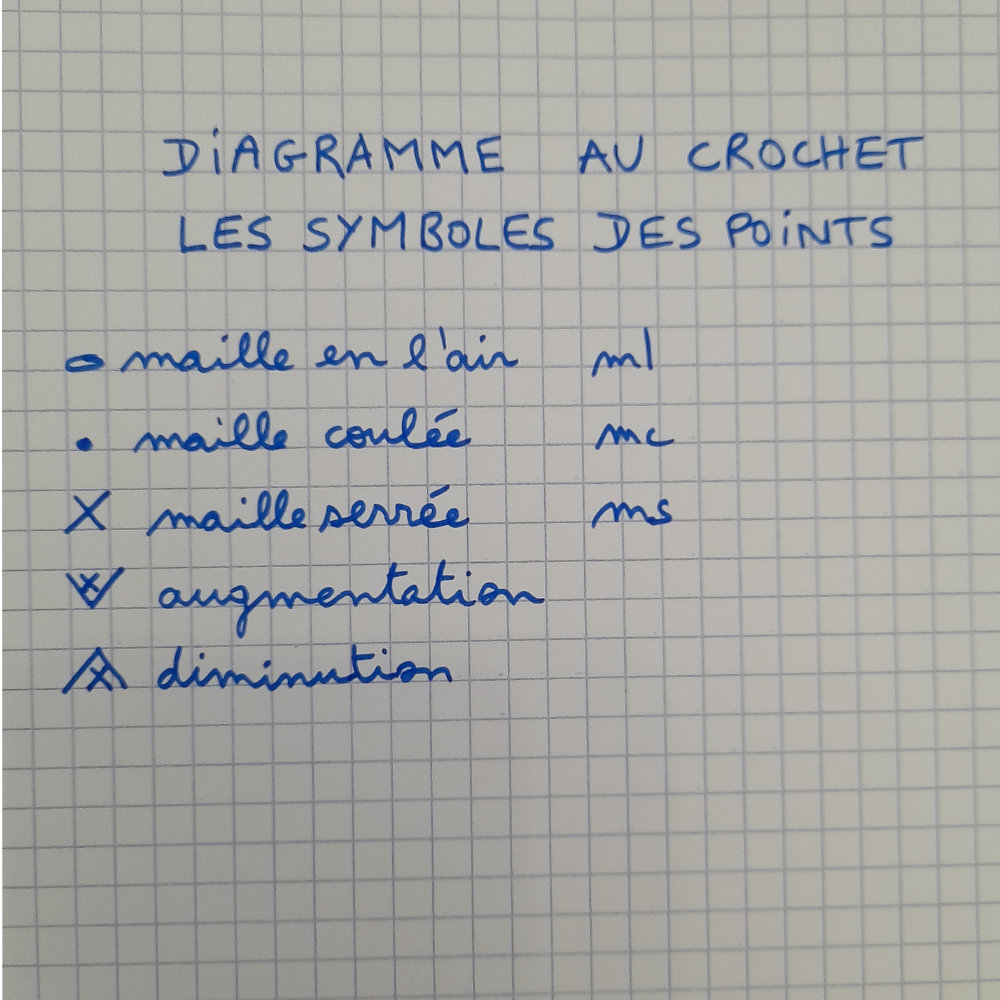 DiAGRAMME AU CROCHET
LES SYMBOLES DES POiNTS
maille en l'air ml
• maille coulée mc
X maille serrée ms
augmentation
diminution